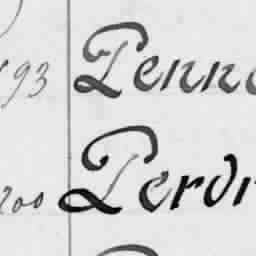 93 Penn
200 Perdr